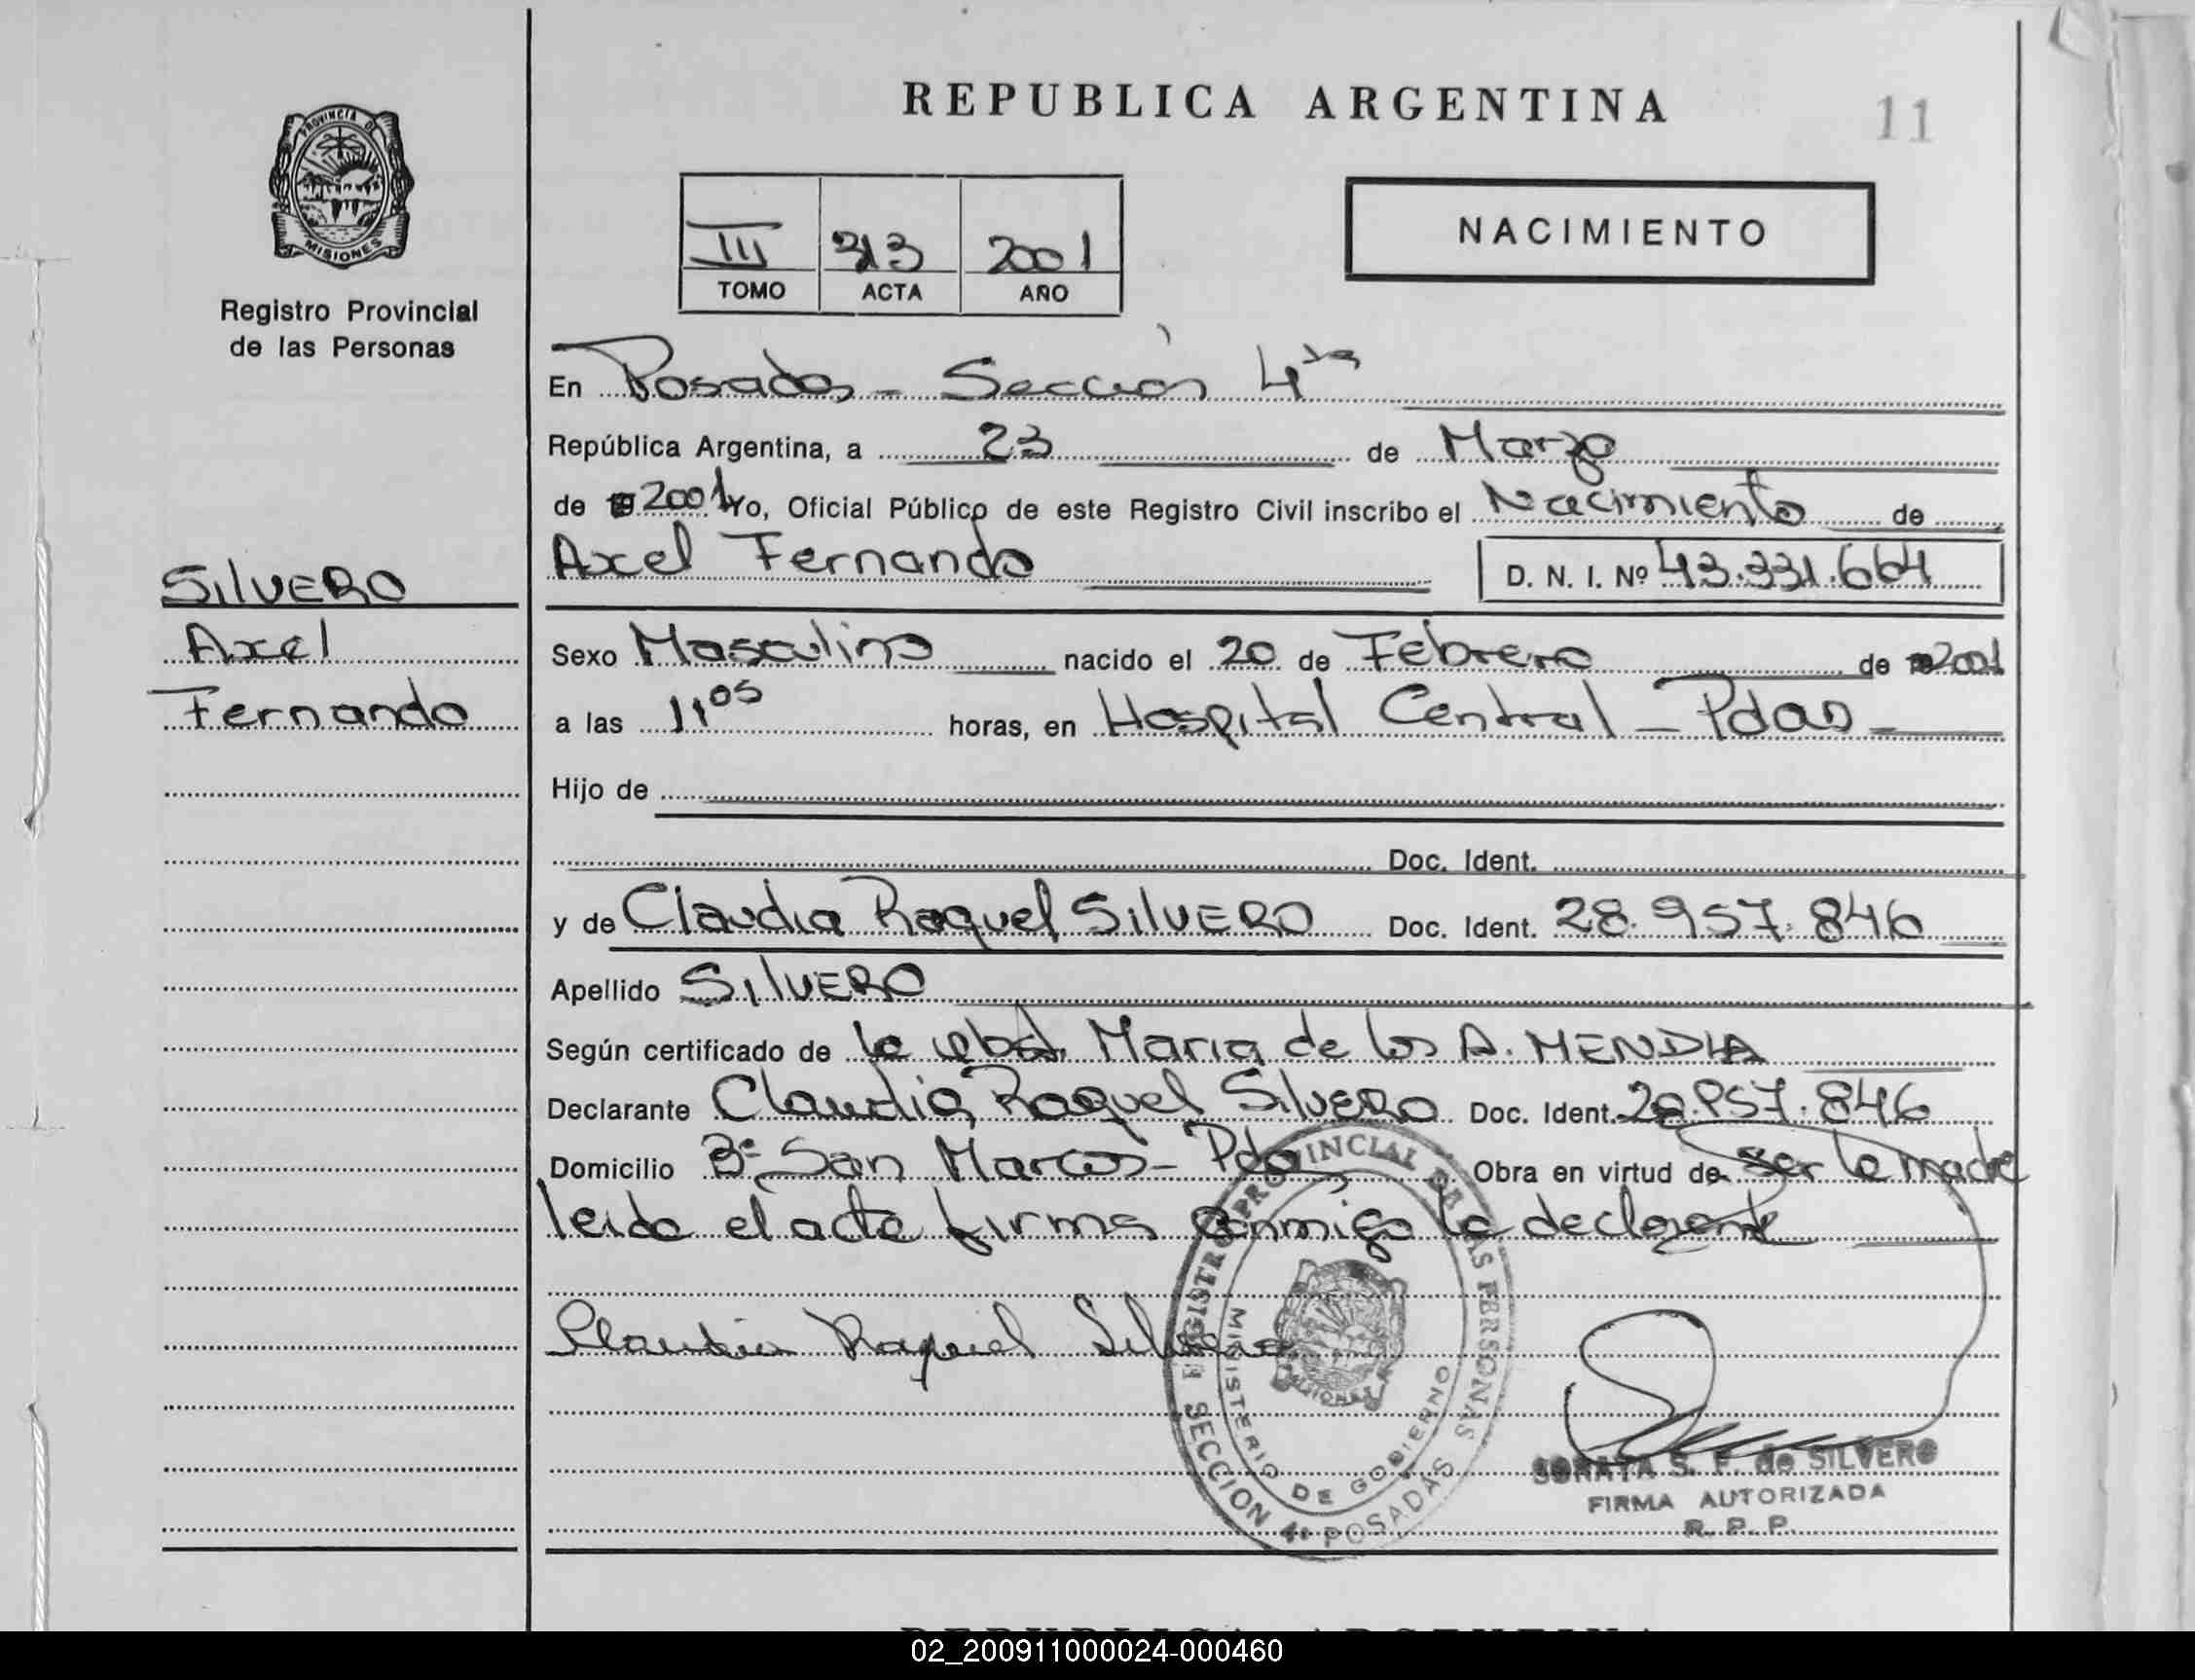 REPUBLICA ARGENTINA
11
PROVINCIA DE
MISIONES
Registro Provincial
de las Personas
III 313 2001
TOMO ACTA AÑO
NACIMIENTO
En Posadas - Sección 4ta
República Argentina, a 23 de Marzo
de 2001 Yo, Oficial Público de este Registro Civil inscribo el Nacimiento de
Axel Fernando D. N. I. Nº 43.331.664
SILVERO
Axel
Fernando
Sexo Masculino nacido el 20 de Febrero de 2001
a las 11 05 horas, en Hospital Central - Pdas -
Hijo de
Doc. Ident.
y de Claudia Raquel SILVERO Doc. Ident. 28.957.846
Apellido SILVERO
Según certificado de la obst. Maria de los A. MENDIA
Declarante Claudia Raquel Silvero Doc. Ident. 28.957.846
Domicilio Bº San Marcos - Pdas Obra en virtud de ser la madre
leida el acta firma conmigo la declarante
Claudia Raquel Silvero
REGISTRO PROVINCIAL DE LAS PERSONAS
MINISTERIO DE GOBIERNO
SECCION 4ª POSADAS
SORAYA S. F. de SILVERO
FIRMA AUTORIZADA
R. P. P.
02_200911000024-000460